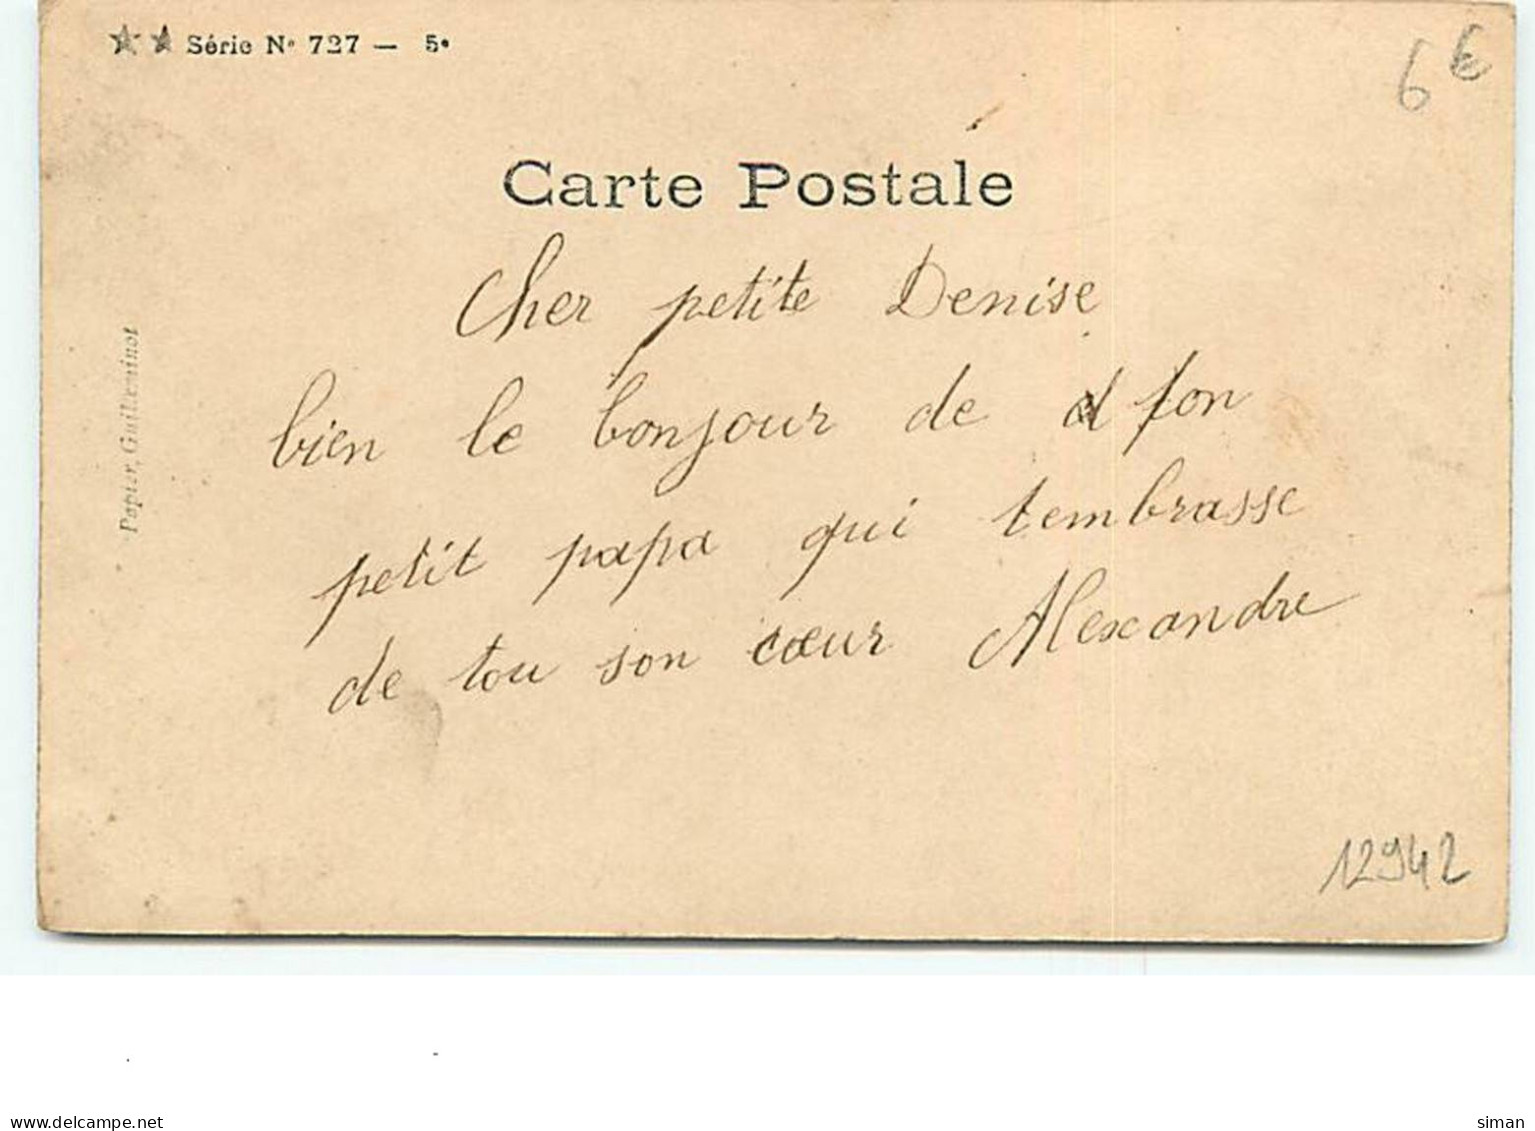 ★★ Série Nº 727 — 5e
6 €
Carte Postale
Papier, Guilleminot
Cher petite Denise
bien le bonjour de ton
petit papa qui tembrasse
de tou son cœur Alexandre
12942
www.delcampe.net
siman